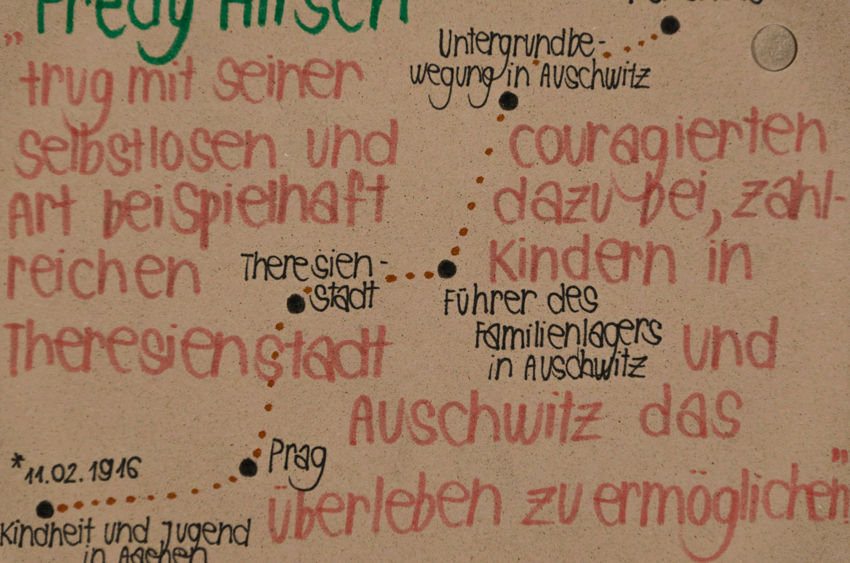 Fredy Hirsch
„trug mit seiner
selbstlosen und couragierten
Art beispielhaft dazu bei, zahl-
reichen Kindern in
Theresienstadt und
Auschwitz das
überleben zu ermöglichen"
Untergrundbe-
wegung in Auschwitz
Führer des
Familienlagers
in Auschwitz
Theresien-
stadt
Prag
*11.02.1916
Kindheit und Jugend
in Aachen